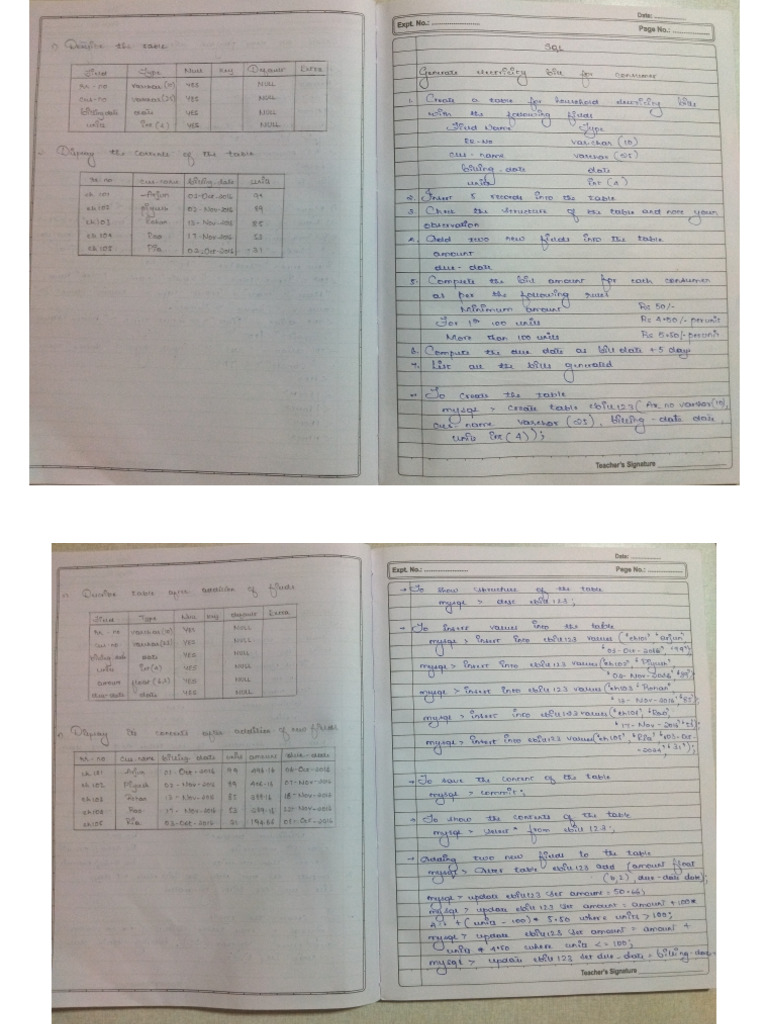 1) Describe the table
Field Type Null Key Default Extra
rr-no varchar(10) YES NULL
cus-no varchar(25) YES NULL
billing date date YES NULL
units int(4) YES NULL
Display the contents of the table
rr-no cus-name billing-date units
ch 101 Arjun 02-Oct-2016 99
ch 102 Piyush 02-Nov-2016 89
ch 103 Rohan 13-Nov-2016 85
ch 104 Rao 17-Nov-2016 53
ch 105 Ria 03-Oct-2016 31
Expt. No.:
Date:
Page No.:
SQL
Generate electricity bill for consumer
1. Create a table for household electricity bills
with the following fields
Field Name Type
RR-No varchar (10)
cus-name varchar (25)
billing-date date
units int (4)
2. Insert 5 records into the table
3. Check the structure of the table and note your
observation
4. Add two new fields into the table
amount
due-date
5. Compute the bill amount for each consumer
as per the following rules
Minimum amount Rs 50/-
For 1st 100 units Rs 4.50/- per unit
More than 100 units Rs 5.50/- per unit
6. Compute the due date as bill date + 5 days
7. List all the bills generated
→ To create the table
mysql > create table ebill123( rr-no varchar(10),
cus-name varchar (25), billing-date date,
units int (4));
Teacher's Signature
Describe table after addition of fields
Field Type Null Key Default Extra
rr-no varchar(10) YES NULL
cus-no varchar(25) YES NULL
billing date date YES NULL
units int(4) YES NULL
amount float(6,2) YES NULL
due-date date YES NULL
Display the contents after addition of new fields
rr-no cus-name billing date units amount due-date
ch 101 Arjun 02-Oct-2016 99
ch 102 Piyush 02-Nov-2016 89 07-Nov-2016
ch 103 Rohan 13-Nov-2016 85 18-Nov-2016
ch 104 Rao 17-Nov-2016 53 22-Nov-2016
ch 105 Ria 03-Oct-2016 31 08-Oct-2016
Expt. No.:
Date:
Page No.:
→ To show structure of the table
mysql > desc ebill 123;
→ To insert values into the table
mysql > insert into ebill 123 values ("ch101" "Arjun",
mysql > insert into ebill 123 values("ch102", "Piyush",
mysql > insert into ebill 123 values ("ch103 "Rohan"
"13-Nov-2016", "85");
mysql > insert into ebill 123 values("ch104", "Rao",
"17-Nov-2016 "53);
mysql > insert into ebill 123 value("ch105", "Ria" "03-Oct-
→ To save the content of the table
mysql > commit;
→ To show the contents of the table
mysql > select * from ebill 123;
→ Adding two new fields to the table
mysql > Alter table ebill 123 add (amount float
(6,2), due-date date);
mysql > update ebill 123 set amount = 50
mysql > update ebill 123 set amount = amount + 100*
+ (units - 100)* 5.50 where units > 100;
mysql > update ebill 123 set amount = amount +
units * 4.50 where units <= 100;
mysql > update ebill 123 set due-date = billing-date
Teacher's Signature